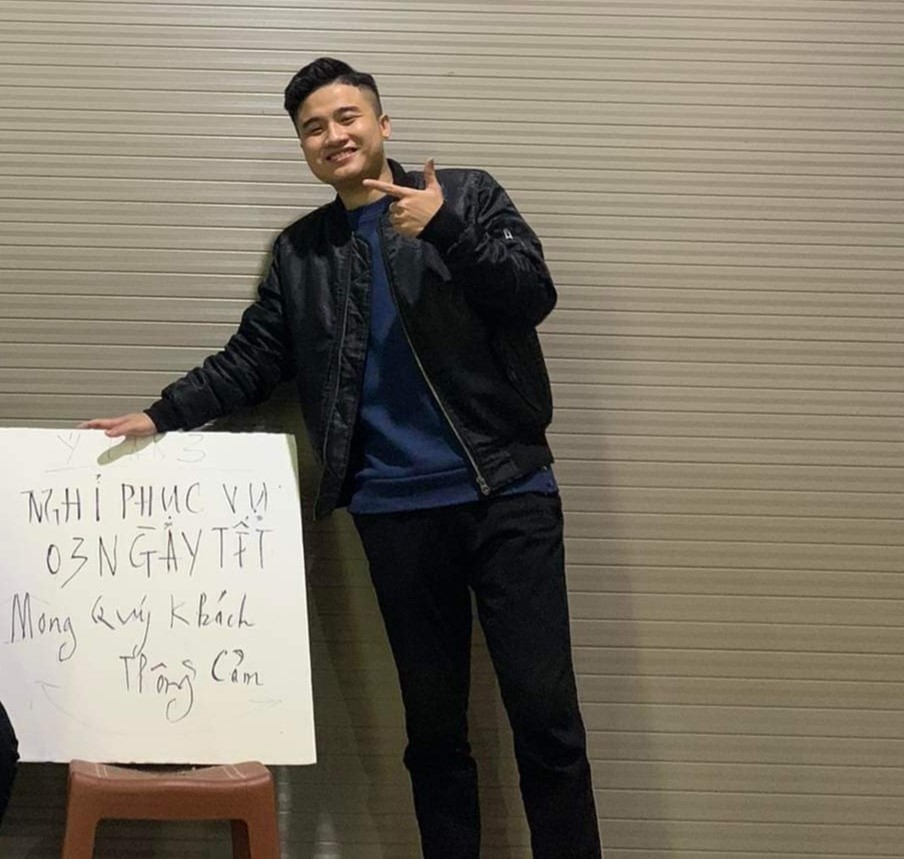 NGHỈ PHỤC VỤ
03 NGÀY TẾT
Mong Quý Khách
Thông Cảm